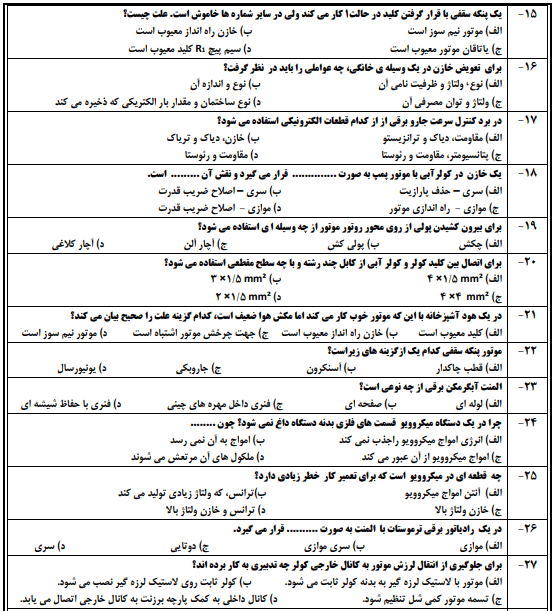 ۱۵- یک پنکه سقفی با قرار گرفتن کلید در حالت۱ کار می کند ولی در سایر شماره ها خاموش است. علت چیست؟
الف) موتور نیم سوز است ب) خازن راه انداز معیوب است
ج) یاتاقان موتور معیوب است د) سیم پیچ R₁ کلید معیوب است
۱۶- برای تعویض خازن در یک وسیله ی خانگی، چه عواملی را باید در نظر گرفت؟
الف) نوع، ولتاژ و ظرفیت نامی آن ب) نوع و اندازه آن
ج) ولتاژ و توان مصرفی آن د) نوع ساختمان و مقدار بار الکتریکی که ذخیره می کند
۱۷- در برد کنترل سرعت جارو برقی از از کدام قطعات الکترونیکی استفاده می شود؟
الف) مقاومت، دیاک و ترانزیستو ب) خازن، دیاک و تریاک
ج) پتانسیومتر، مقاومت و رئوستا د) مقاومت و رئوستا
۱۸- یک خازن در کولرآبی با موتور پمپ به صورت .............. قرار می گیرد و نقش آن ......... است.
الف) سری – حذف پارازیت ب) سری – اصلاح ضریب قدرت
ج) موازی - راه اندازی موتور د) موازی - اصلاح ضریب قدرت
۱۹- برای بیرون کشیدن پولی از روی محور روتور موتور از چه وسیله ا ی استفاده می شود؟
الف) چکش ب) پولی کش ج) آچار آلن د) آچار کلاغی
۲۰- برای اتصال بین کلید کولر و کولر آبی از کابل چند رشته و با چه سطح مقطعی استفاده می شود؟
الف) ۴ ×۱/۵ mm² ب) ۳ ×۱/۵ mm²
ج) ۴ ×۴ mm² د) ۲ ×۱/۵ mm²
۲۱- در یک هود آشپزخانه با این که موتور خوب کار می کند اما مکش هوا ضعیف است، کدام گزینه علت را صحیح بیان می کند؟
الف) کلید معیوب است ب) خازن راه انداز معیوب است ج) جهت چرخش موتور اشتباه است د) موتور نیم سوز است
۲۲- موتور پنکه سقفی کدام یک ازگزینه های زیراست؟
الف) قطب چاکدار ب) آسنکرون ج) جاروبکی د) یونیورسال
۲۳- المنت آبگرمکن برقی از چه نوعی است؟
الف) لوله ای ب) صفحه ای ج) فنری داخل مهره های چینی د) فنری با حفاظ شیشه ای
۲۴- چرا در یک دستگاه میکروویو قسمت های فلزی بدنه دستگاه داغ نمی شود؟ چون ........
الف) انرژی امواج میکروویو راجذب نمی کند ب) امواج به آن نمی رسد
ج) امواج میکروویو از آن عبور می کند د) ملکول های آن مرتعش می شوند
۲۵- چه قطعه ای در میکروویو است که برای تعمیر کار خطر زیادی دارد؟
الف) آنتن امواج میکروویو ب)ترانس، که ولتاژ زیادی تولید می کند
ج) خازن ولتاژ بالا د) ترانس و خازن ولتاژ بالا
۲۶- در یک رادیاتور برقی ترموستات با المنت به صورت .......... قرار می گیرد.
الف) موازی ب) سری موازی ج) دوتایی د) سری
۲۷- برای جلوگیری از انتقال لرزش موتور به کانال خارجی کولر چه تدبیری به کار برده اند؟
الف) موتور با لاستیک لرزه گیر به بدنه کولر ثابت می شود. ب) کولر ثابت روی لاستیک لرزه گیر نصب می شود.
ج) تسمه موتور کمی شل تنظیم شود. د) کانال داخلی به کمک پارچه برزنت به کانال خارجی اتصال می یابد.